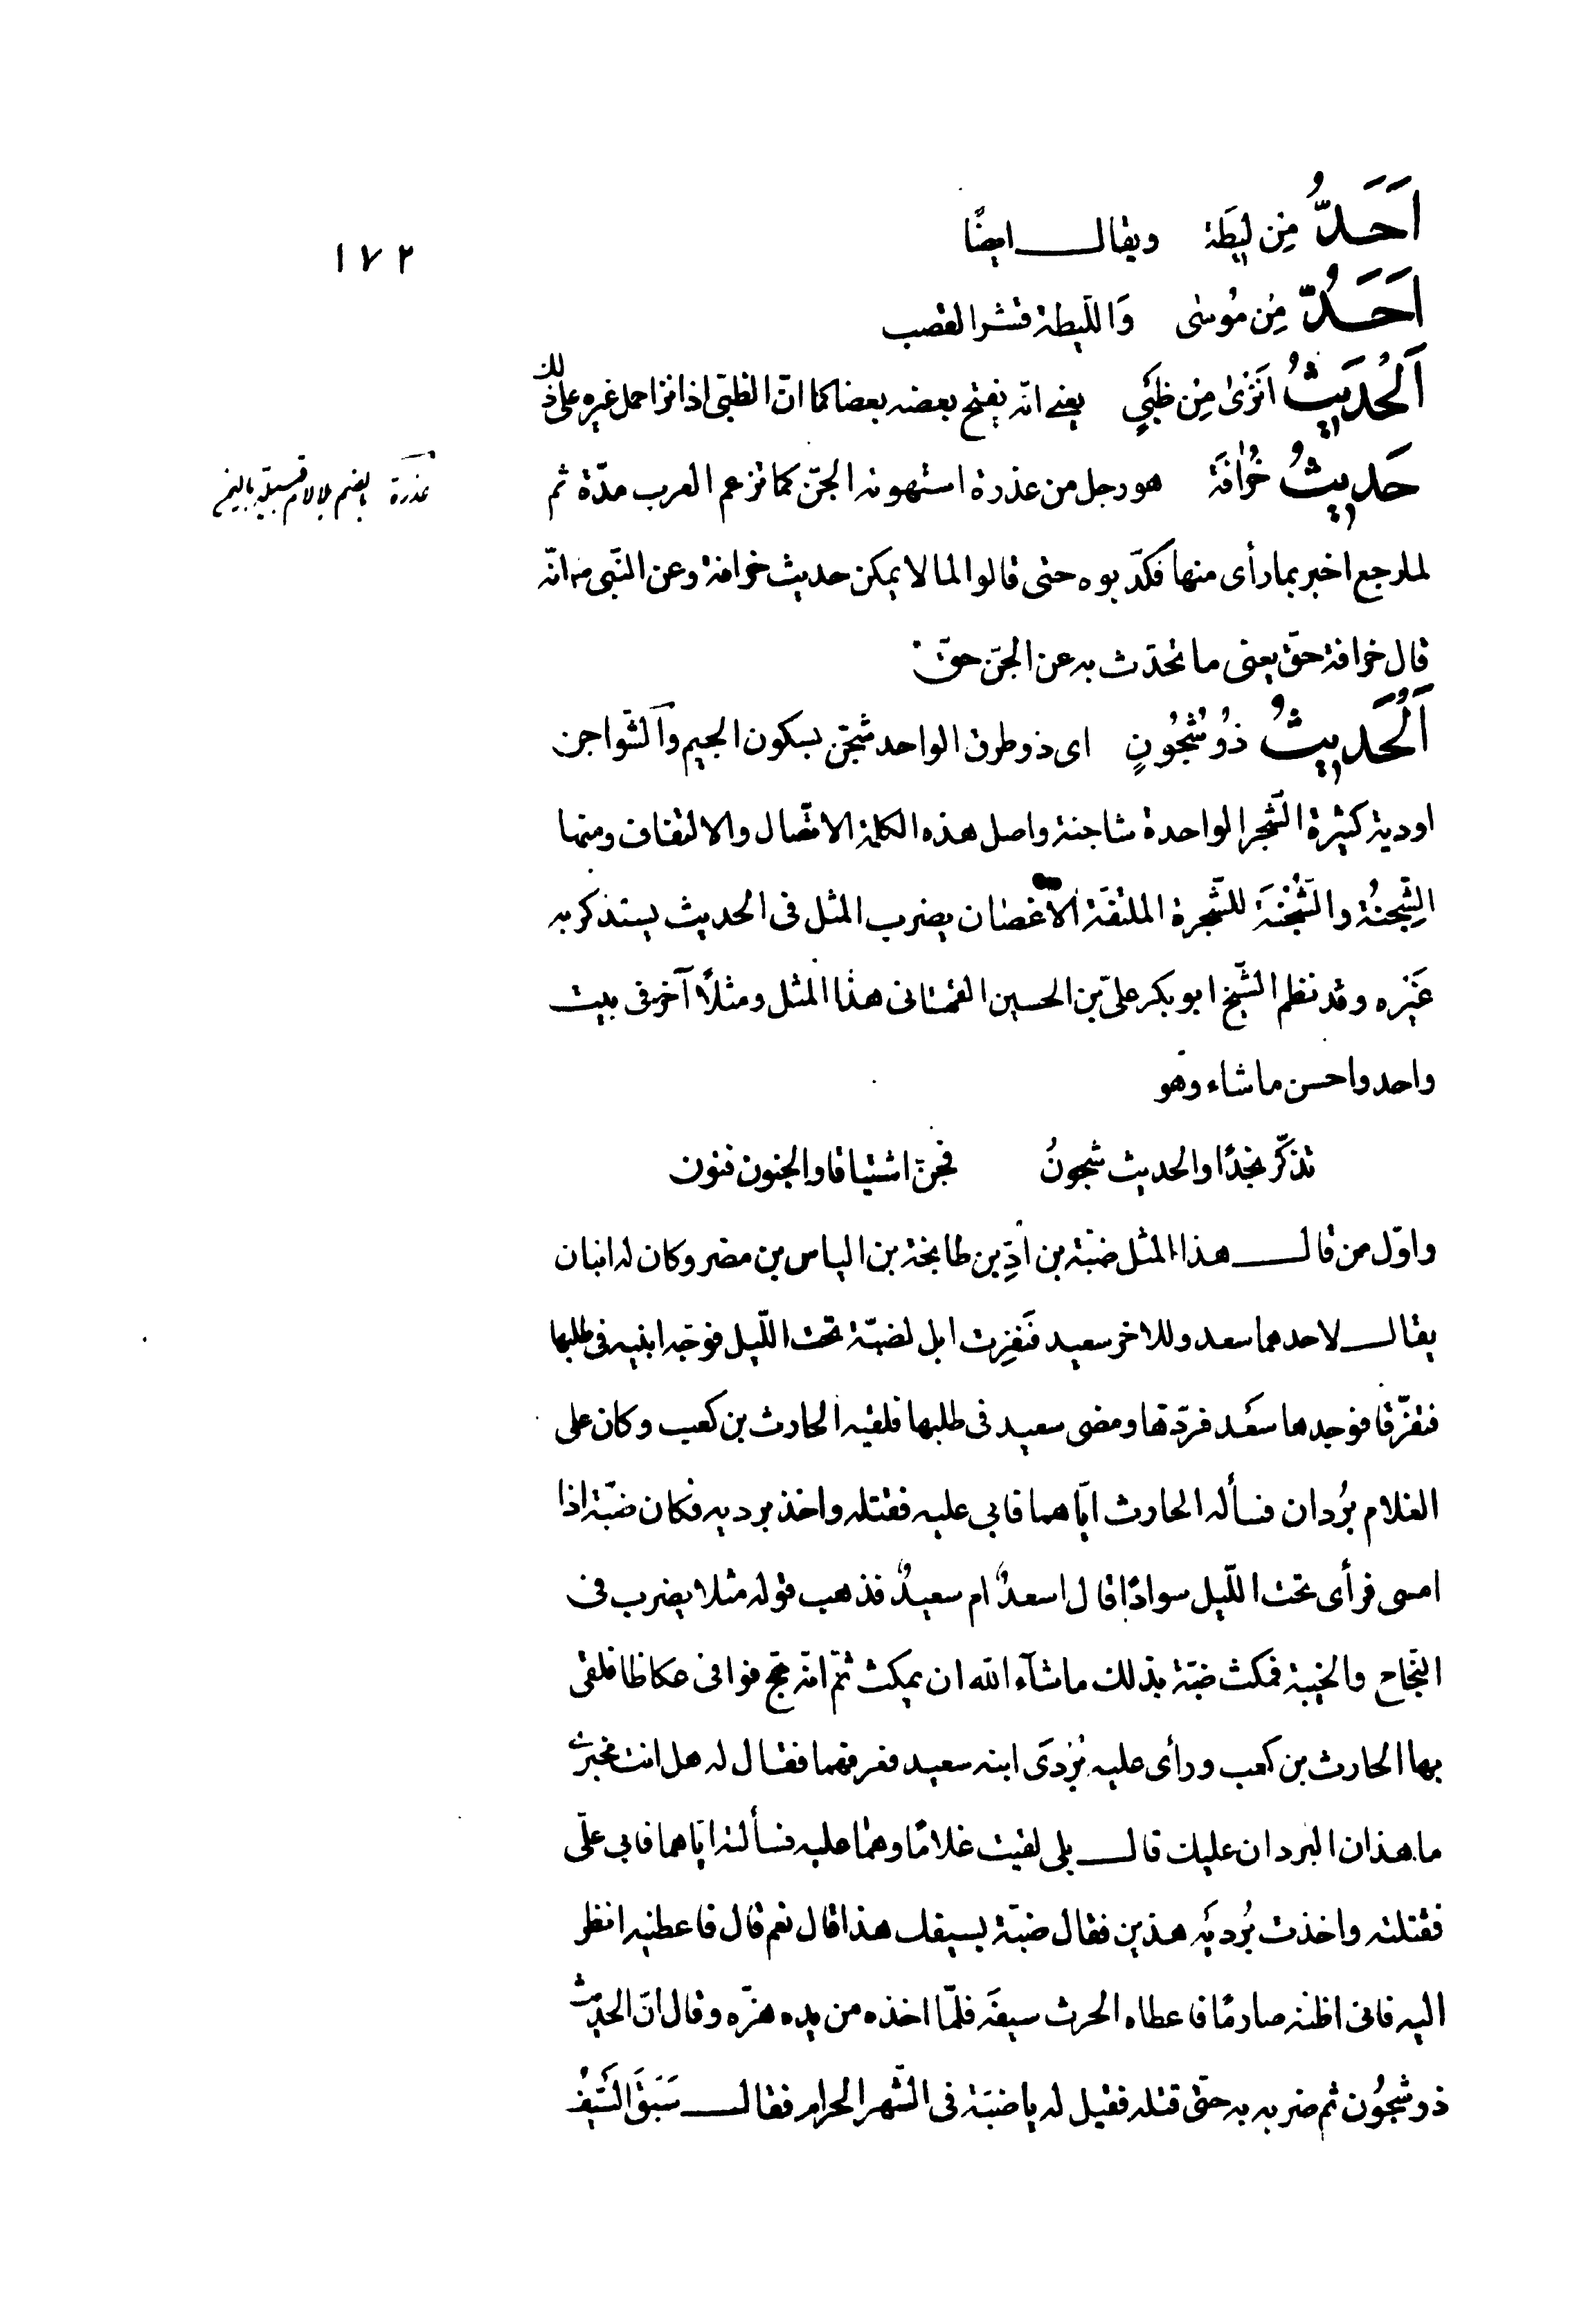 اَحَدُّ مِن لِيطَة ويقال ايضًا
١٧٢
اَحَدُّ مِن مُوسٰى وَاللّيطة قشر القصب
اَلْحُدَيثُ اَنزىٰ مِن ظَبْيٍ يعنى انّه يفتح بعضه بعضا كما انّ الظبى اذا نزا حمل غيره على ذلك
حَديثُ خُرافَة هو رجل من عذرة استهوته الجنّ كما تزعم العرب مدّة ثم
عذرة بالضم بلالام قبيلة باليمن
لما رجع اخبر بما رأى منها فكذّبوه حتى قالوا لما لا يمكن حديث خرافة وعن النّبى ص انّه
قال خرافة حقّ يعنى ما تحدّث به عن الجنّ حقّ
اَلْحَديثُ ذُو شُجُونٍ اى ذو طرق الواحد شجن بسكون الجيم والشّواجن
اودية كثيرة الشّجر الواحدة شاجنة واصل هذه الكلمة الاتّصال والالتفاف ومنها
الشِّجنُة والشُّجْنَة للشّجرة الملتفّة الاغصان يضرب المثل فى الحديث يستذكر به
غَيره وقد نظم الشّيخ ابو بكر علىّ بن الحسين القهستانى هذا المثل ومثلاً آخر فى بيت
واحد واحسن ما شاء وهو
تذكّر نجدًا والحديث شجونُ فجنّ اشتياقا والجنون فنون
واوّل من قال هذا المثل ضبّة بن ادِّ بن طابخة بن الياس بن مضر وكان له ابنان
يقال لاحدهما سعد وللاخر سعيد فنَفرت ابل لضبّة تحت اللّيل فوجّه ابنيه فى طلبها
فتفرّقا فوجدها سعَد فردّها ومضى سعيد فى طلبها فلقيه الحارث بن كعب وكان على
الغلام بُردان فسأله الحارث ايّاهما فابى عليه فقتله واخذ برديه فكان ضبّة اذا
امسى فرأى تحت اللّيل سوادًا قال اسعدٌ ام سعيدٌ فذهب قوله مثلا يضرب فى
النّجاح والخيبة فمكث ضبّة بذلك ما شآء الله ان يمكث ثمّ انّه حجّ فوافى عكاظا فلقى
بها الحارث بن كعب ورأى عليه بُردَى ابنه سعيد فعرفهما فقال له هل انت مخبرى
ما هذان البردان عليك قال بلى لقيت غلامًا وهما عليه فسألته ايّاهما فابى علىّ
فقتلته واخذت بُردَيه هذين فقال ضبّة بسيفك هذا قال نعم قال فاعطنيه انظر
اليه فانى اظنّه صارمًا فاعطاه الحرث سيفَه فلمّا اخذه من يده هزّه وقال انّ الحديث
ذو شجُون ثم ضربه به حتّى قتله فقيل له يا ضبّة فى الشّهر الحرام فقال سَبَقَ السَّيفُ